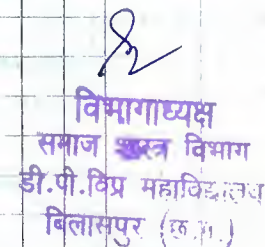 विभागाध्यक्ष
समाज शास्त्र विभाग
डी.पी.विप्र महाविद्यालय
बिलासपुर (छ.ग.)